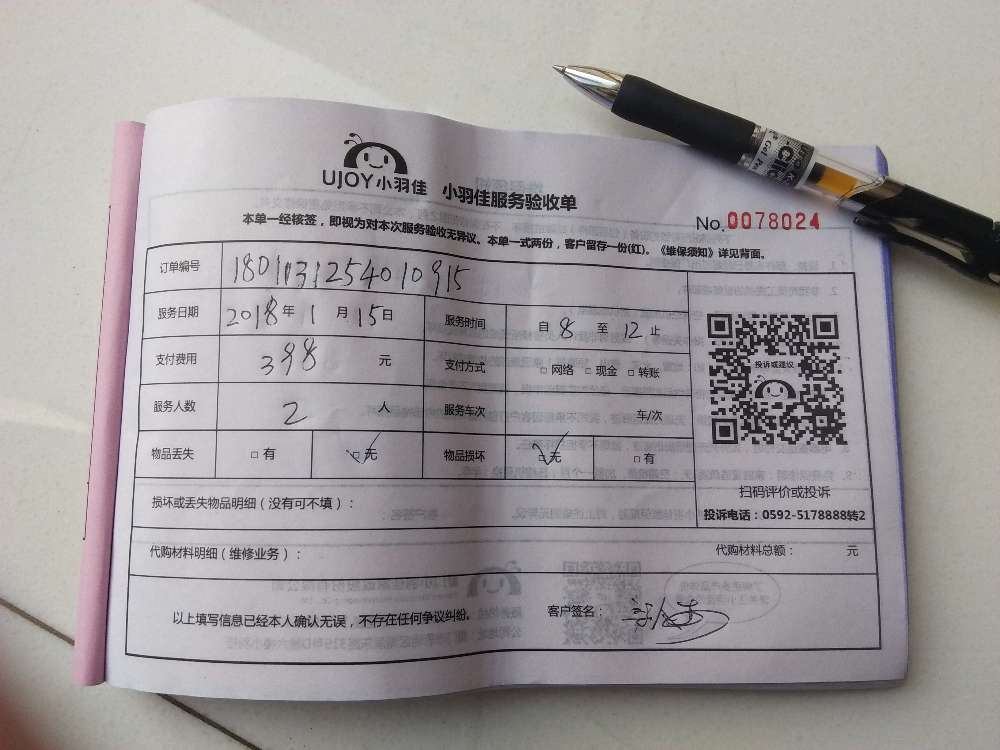 UJOY小羽佳 小羽佳服务验收单
No.0078024
本单一经核签，即视为对本次服务验收无异议。本单一式两份，客户留存一份(红)。《维保须知》详见背面。
订单编号 1801131254010915
服务日期 2018年1月15日 服务时间 自8至12止
支付费用 398 元 支付方式 □网络 □现金 □转账
服务人数 2 人 服务车次 车/次
物品丢失 □有 ☑无 物品损坏 ☑无 □有
投诉或建议
扫码评价或投诉
投诉电话：0592-5178888转2
损坏或丢失物品明细（没有可不填）：
代购材料明细（维修业务）： 代购材料总额： 元
以上填写信息已经本人确认无误，不存在任何争议纠纷。 客户签名：